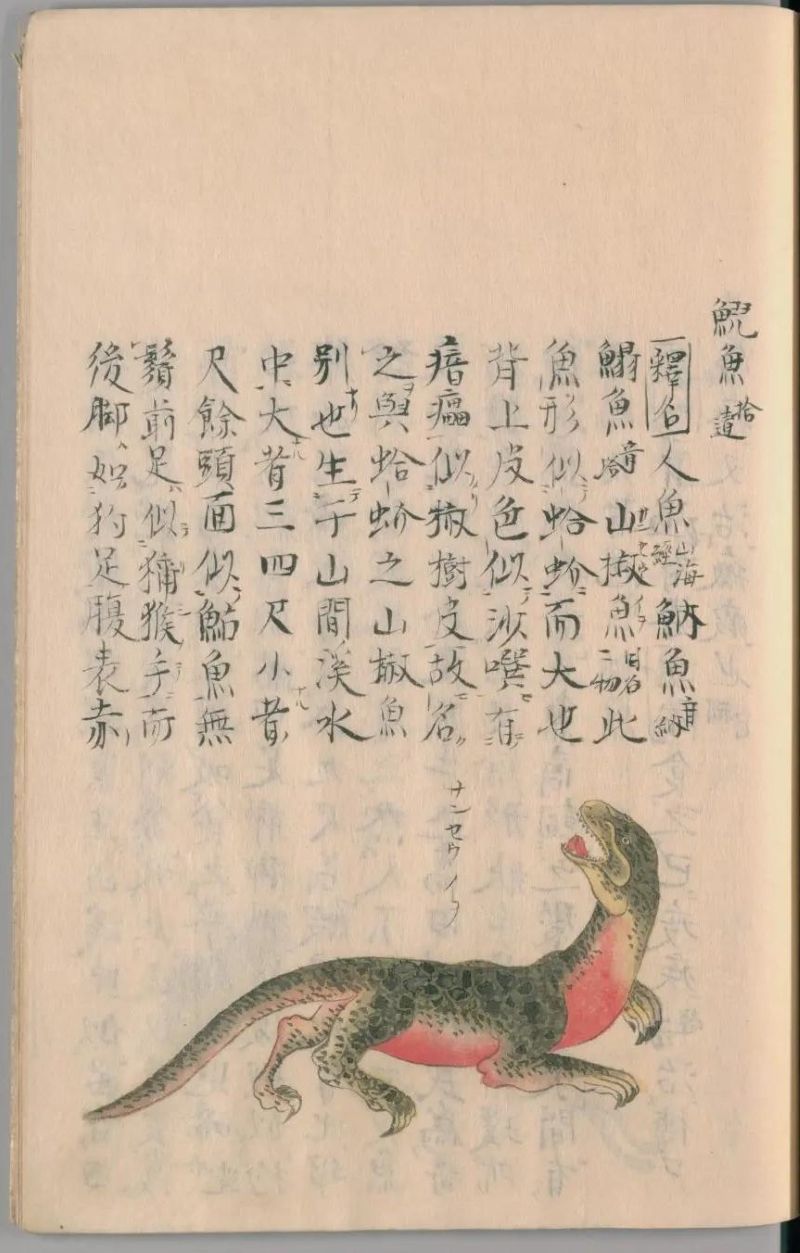 鯢魚 拾遺
釋名 人魚 山海經 魶魚 音納
鰨魚 音塔 山椒魚 日名 二物 此
魚形似蛤蚧而大也
背上皮色似沙噀有
似椒樹皮故名
之與蛤蚧之山椒魚
別也生于山間溪水
中大者三四尺小者
尺餘頭面似鮎魚無
鬚前足似獼猴手而
後脚如狗足腹表赤
サンセウイヲ